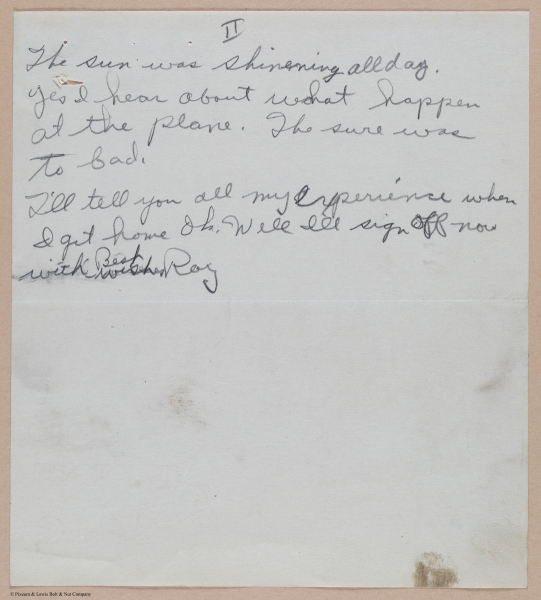 II
The sun was shinening all day.
Yes I hear about what happen
at the plane. The sure was
to bad.
I'll tell you all my experience when
I get home Ok. Well I'll sign off now
with Best wishes Roy
© Pissaro & Lewis Bolt & Nut Company